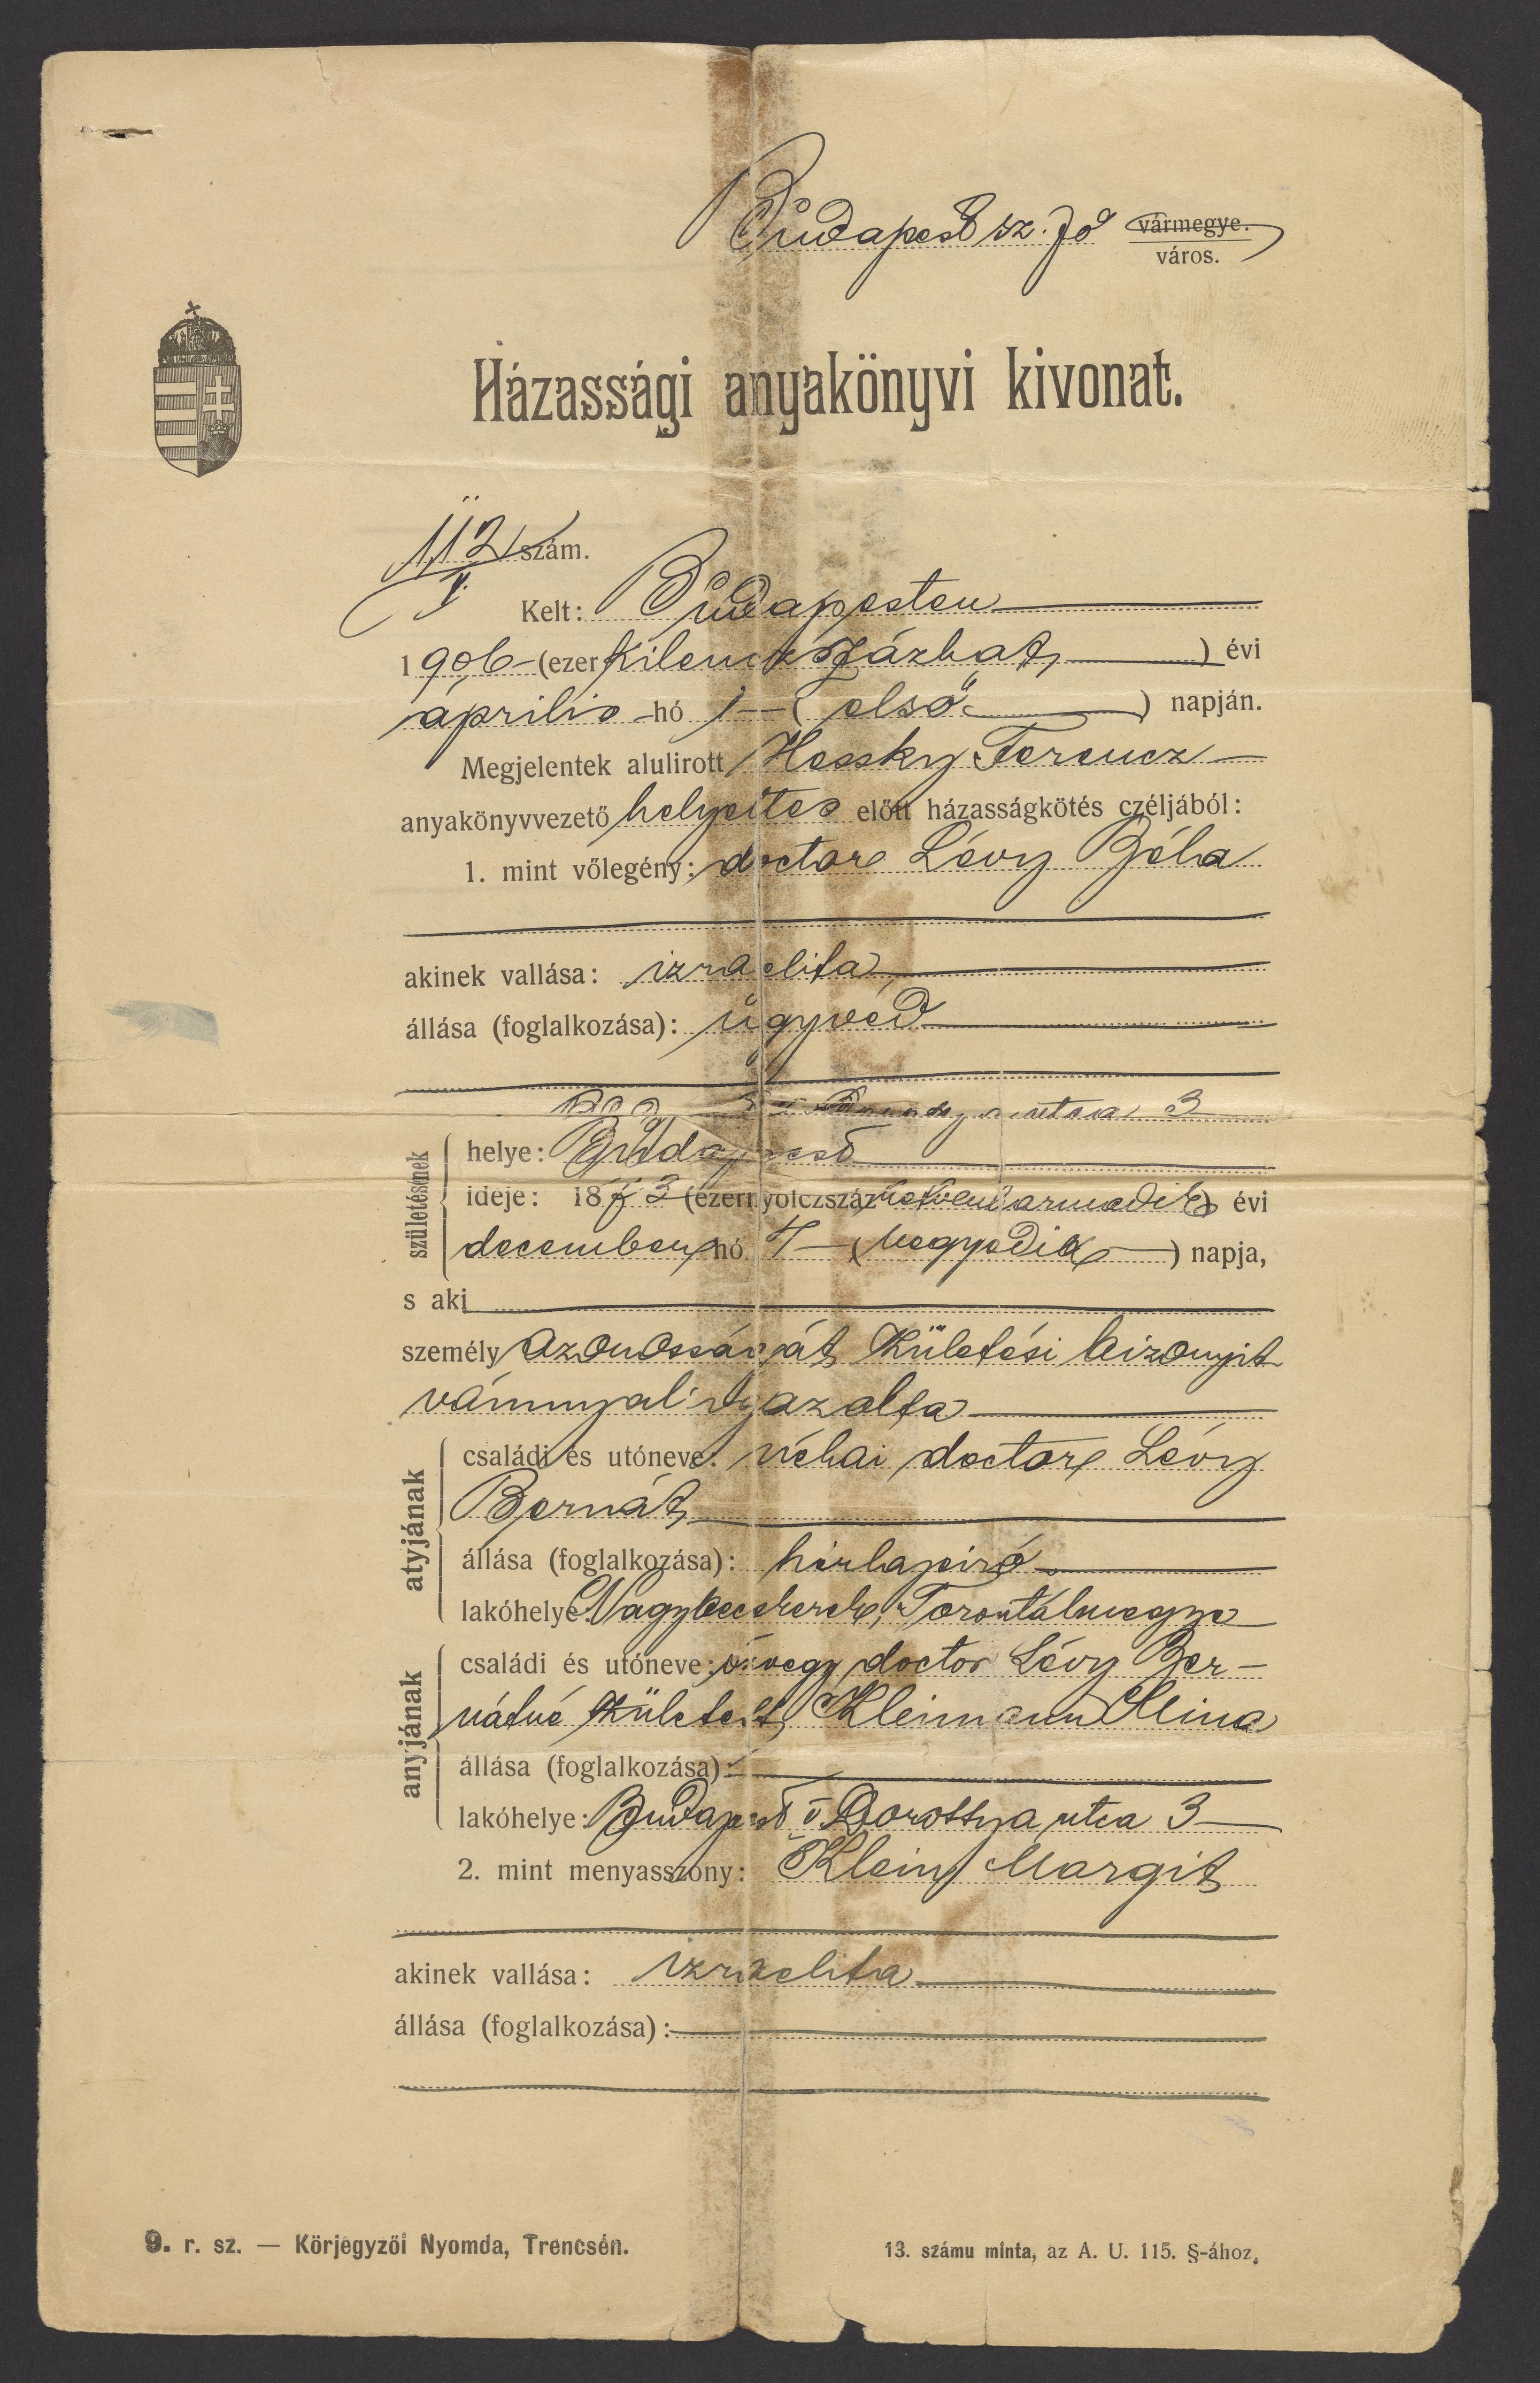 Budapest sz. fő vármegye.
város.
Házassági anyakönyvi kivonat.
112 szám.
Kelt: Budapesten
1906 (ezer kilenczszázhat) évi
április hó 1 (első) napján.
Megjelentek alulirott Hossky Ferencz
anyakönyvvezető helyettes előtt házasságkötés czéljából:
1. mint vőlegény: doctor Lévy Béla
akinek vallása: izraelita
állása (foglalkozása): ügyvéd
utca 3
születésének
helye: Budapest
ideje: 1873 (ezernyolczszáz hetvenharmadik) évi
december hó 4 (negyedik) napja,
s aki
személyazonosságát születési bizonyit
vánnyal igazolta
atyjának
családi és utóneve: néhai doctor Lévy
Bernát
állása (foglalkozása): hirlapiró
lakóhelye: Nagybecskerek, Torontálmegye
anyjának
családi és utóneve: özvegy doctor Lévy Ber-
nátné született Kleimann Mina
állása (foglalkozása):
lakóhelye: Budapest V Dorottya utca 3
2. mint menyasszony: Klein Margit
akinek vallása: izraelita
állása (foglalkozása):
9. r. sz. — Körjegyzői Nyomda, Trencsén.
13. számu minta, az A. U. 115. §-ához.